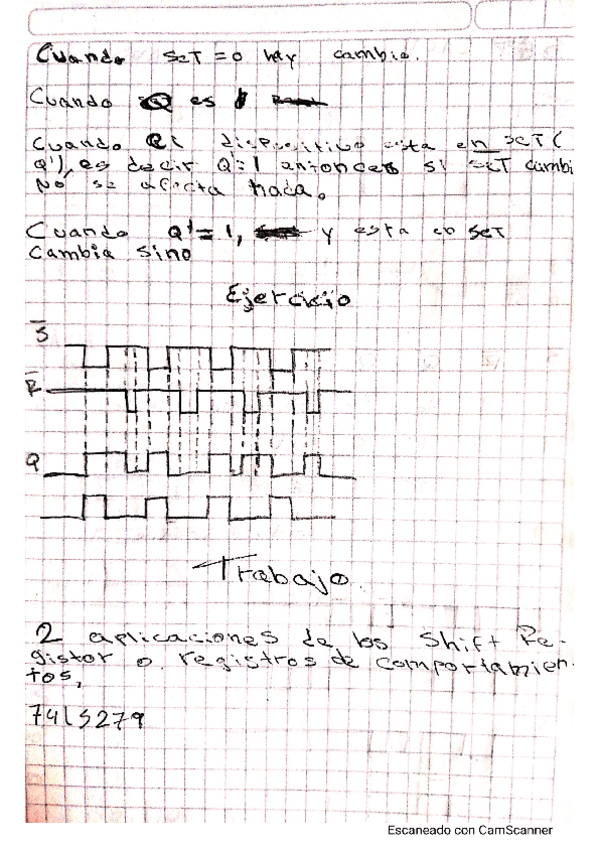 Cuando SET = 0 hay cambio.
Cuando Q es
Cuando el dispositivo esta en SET (
Q'), es decir Q'=1 entonces si SET cambi
No se afecta nada.
Cuando Q'=1, y esta en SET
Cambia sino
Ejercicio
S
R
Q
Trabajo.
2 aplicaciones de los Shift Re-
gistor o registros de comportamien-
tos,
74LS279
Escaneado con CamScanner